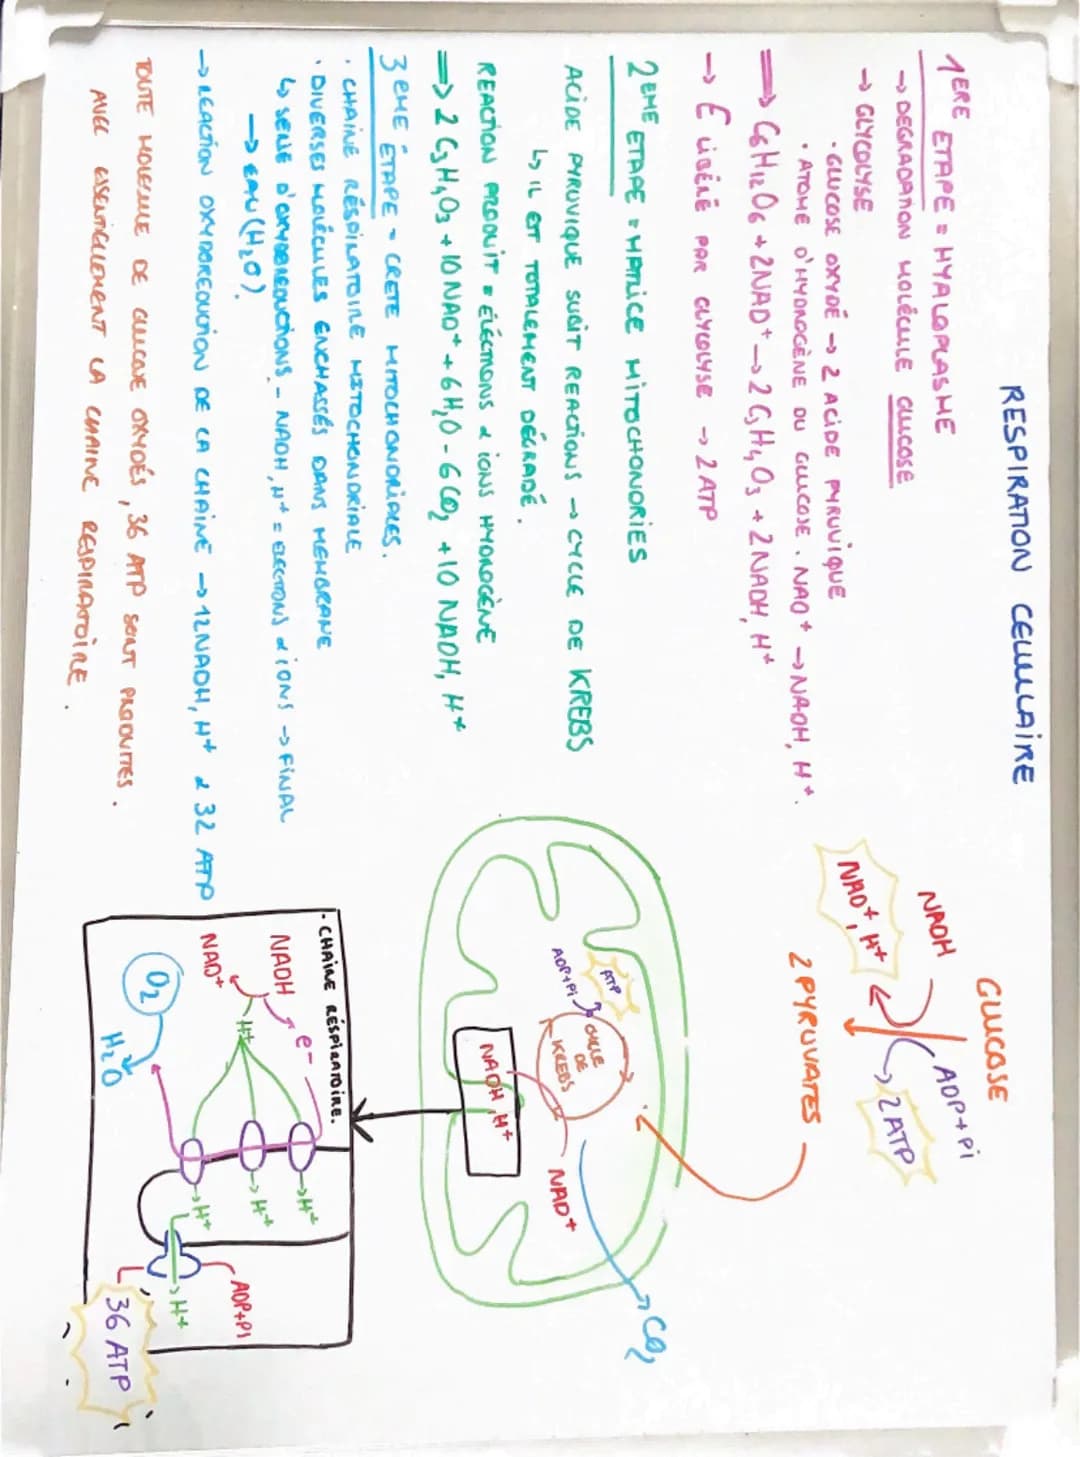 RESPIRATION CELLULAIRE
1ERE ETAPE = HYALOPLASME
→ DEGRADATION MOLÉCULE GLUCOSE
→ GLYCOLYSE
· GLUCOSE OXYDÉ → 2 ACIDE PYRUVIQUE
· ATOME D'HYDROGÈNE DU GLUCOSE . NAD+ → NADH, H+.
⇒ C6H12O6 + 2NAD+ → 2 C3H4O3 + 2NADH, H+
→ E LIBÉRÉ PAR GLYCOLYSE → 2 ATP
2EME ETAPE = MATRICE MITOCHONDRIES
ACIDE PYRUVIQUE SUBIT REACTIONS → CYCLE DE KREBS
↳ IL ET TOTALEMENT DÉGRADÉ.
REACTION PRODUIT = ÉLÉCTRONS & IONS HYDROGÈNE
⇒ 2 C3H4O3 + 10 NAD+ + 6 H2O - 6 CO2 + 10 NADH, H+
3EME ÉTAPE - CRETE MITOCHONDRIALES.
· CHAINE RÉSPIRATOIRE MITOCHONDRIALE
· DIVERSES MOLÉCULES ENCHASSÉS DANS MEMBRANE
↳ SERIE D'OXYDOREDUCTIONS - NADH, H+ = ELECTONS & IONS → FINAL
→ EAU (H2O).
→ REACTION OXYDOREDUCTION DE LA CHAINE → 12NADH, H+ & 32 ATP
TOUTE MOLECULE DE GLUCOSE OXYDÉS, 36 ATP SENT PRODUITES.
AVEC ESSENTIELLEMENT LA CHAINE RESPIRATOIRE.
GLUCOSE
NADH
ADP+Pi
NAD+, H+
2 ATP
2 PYRUVATES
ATP
ADP+Pi
CYCLE DE KREBS
NAD+
NADH, H+
CO2
· CHAINE RÉSPIRATOIRE.
NADH
e-
NAD+
H+
O2
H2O
→ H+
→ H+
→ H+
ADP+Pi
→ H+
36 ATP